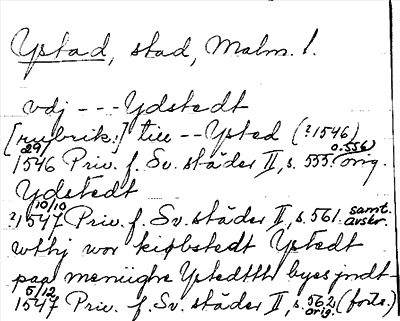 Ystad, stad, Malm. l.
vdj --- Ydstedt
[rubrik:] till -- Ysted (?1546)
29/ 1546 Priv. f. Sv. städer II, s. 555 (o. 556) orig.
Ydstedt
10/10 ?1547 Priv. f. Sv. städer II, s. 561. samt. avskr.
wthj wor kiøbstedt Ystedt
paa meniighe Ystedtth byes jndt-
5/12 1547 Priv. f. Sv. städer II, s. 562 orig. (forts.)